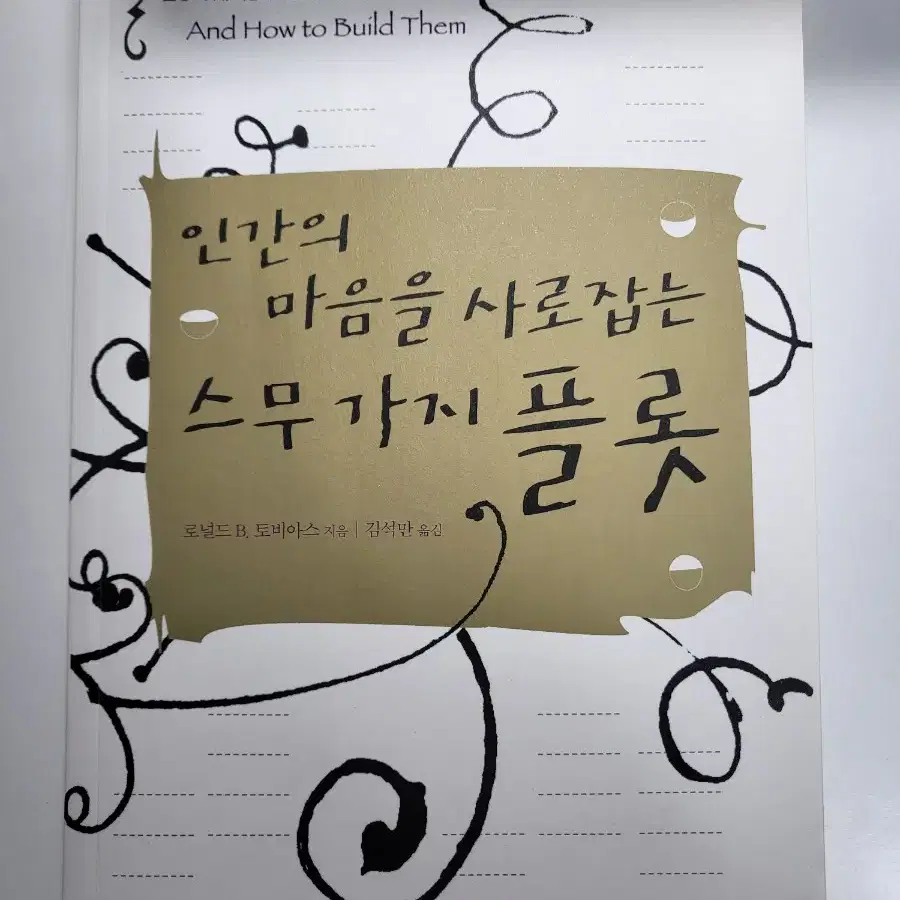 And How to Build Them
인간의
마음을 사로잡는
스무 가지 플롯
로널드 B. 토비아스 지음 | 김석만 옮김